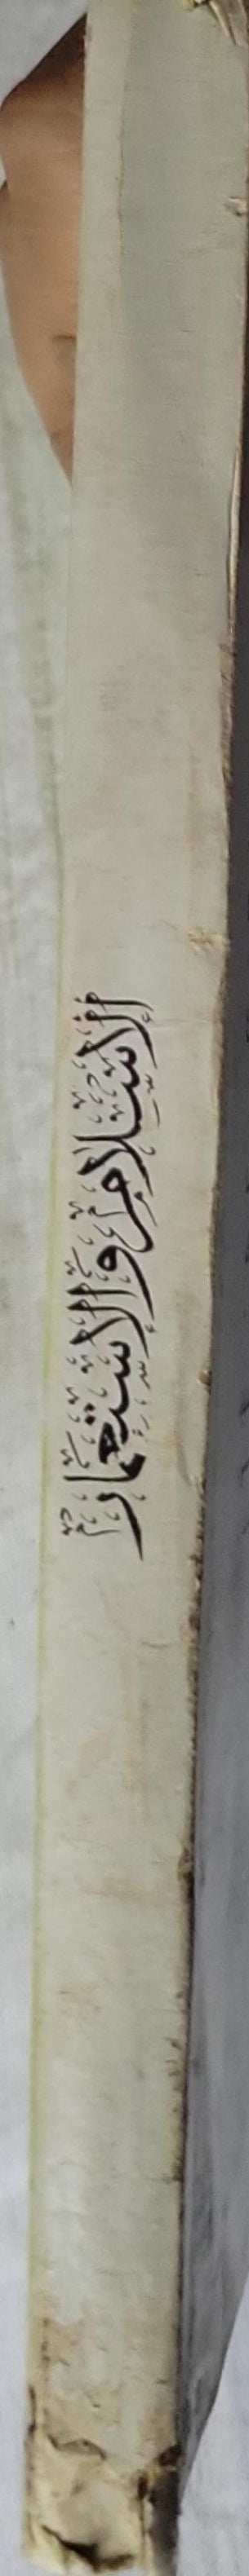 الإسلام والاستعمار